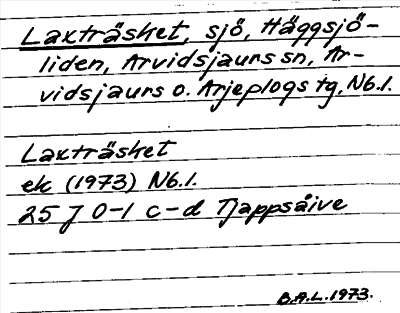 Laxträsket, sjö, Häggsjö-
liden, Arvidsjaurs sn, Ar-
vidsjaurs o. Arjeplogs tg, Nb.l.
Laxträsket
ek (1973) Nb.l.
25 J 0-1 c-d Tjappsåive
B.A.L. 1973.